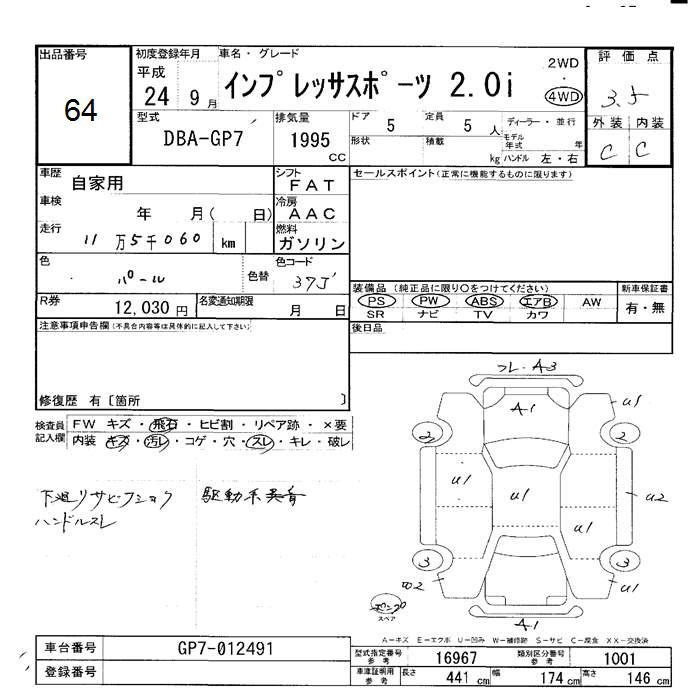 出品番号
64
初度登録年月
平成
24 9月
車名・グレード
インプレッサスポーツ 2.0i
2WD
・
4WD
評価点
3.5
外装 内装
C C
型式
DBA-GP7
排気量
1995
CC
ドア
5
定員
5 人
ディーラー・並行
形状
積載
kg
モデル年式 年
ハンドル 左・右
車歴
自家用
シフト
FAT
車検
年 月( 日)
冷房
AAC
走行
11万5千060 km
燃料
ガソリン
色
パール
色替
色コード
37J
R券
12,030円
名変通知期限
月 日
セールスポイント(正常に機能するものに限ります)
装備品(純正品に限り○をつけてください)
PS PW ABS エアB AW
SR ナビ TV カワ
新車保証書
有・無
後日品
注意事項申告欄(不具合内容等は具体的に記入して下さい)
修復歴 有〔箇所 〕
検査員記入欄
FW キズ・飛石・ヒビ割・リペア跡・×要
内装 キズ・汚レ・コゲ・穴・スレ・キレ・破レ
下廻りサビフショク 駆動系異音
ハンドルスレ
フレ・A3
A1
U1
2 2
U1
U1
U2
U1
3 3
U1
A1
スペア
A-キズ E-エクボ U-凹み W-補修跡 S-サビ C-腐食 XX-交換済
車台番号
GP7-012491
登録番号
型式指定番号
参考
16967
類別区分番号
参考
1001
車庫証明用
参考
長さ
441 cm
幅
174 cm
高さ
146 cm